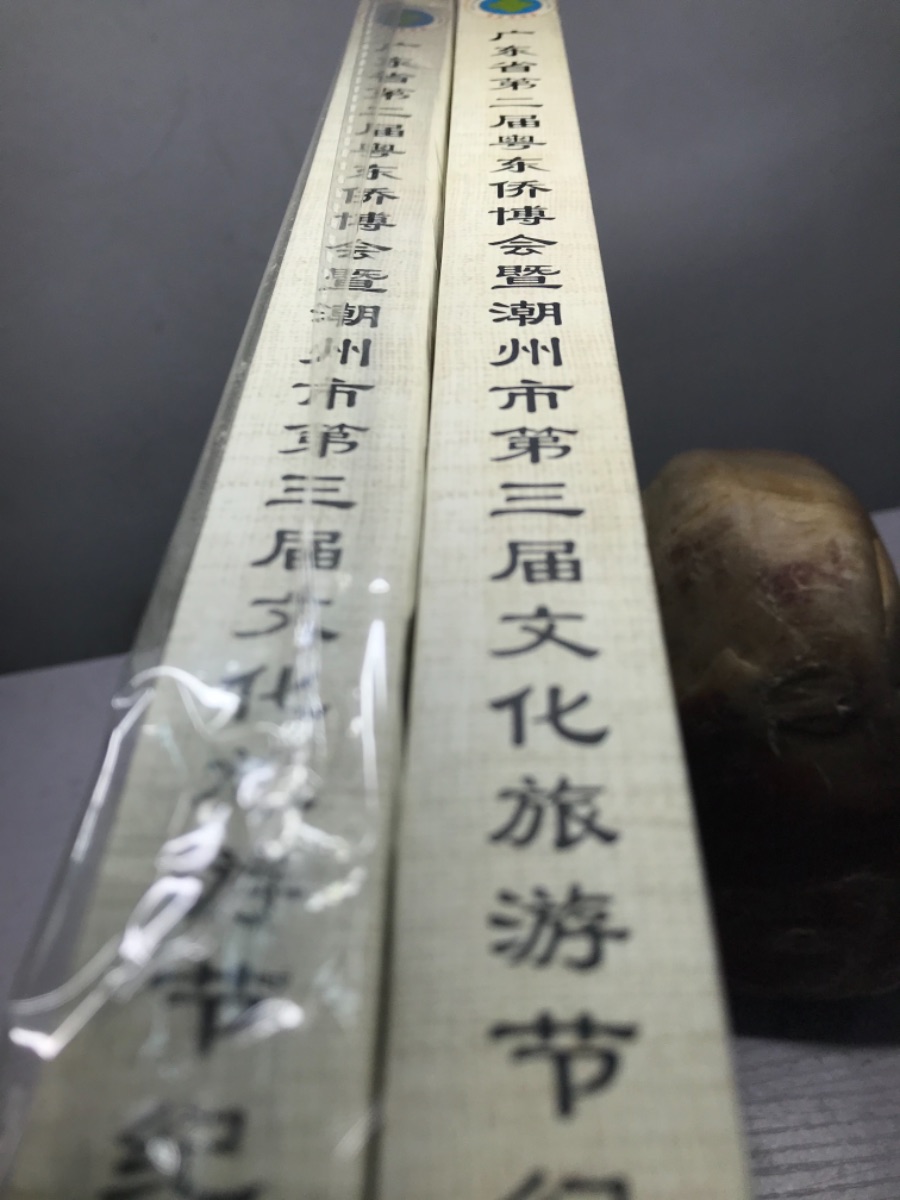 广东省第二届粤东侨博会暨潮州市第三届文化旅游节纪
广东省第二届粤东侨博会暨潮州市第三届文化旅游节